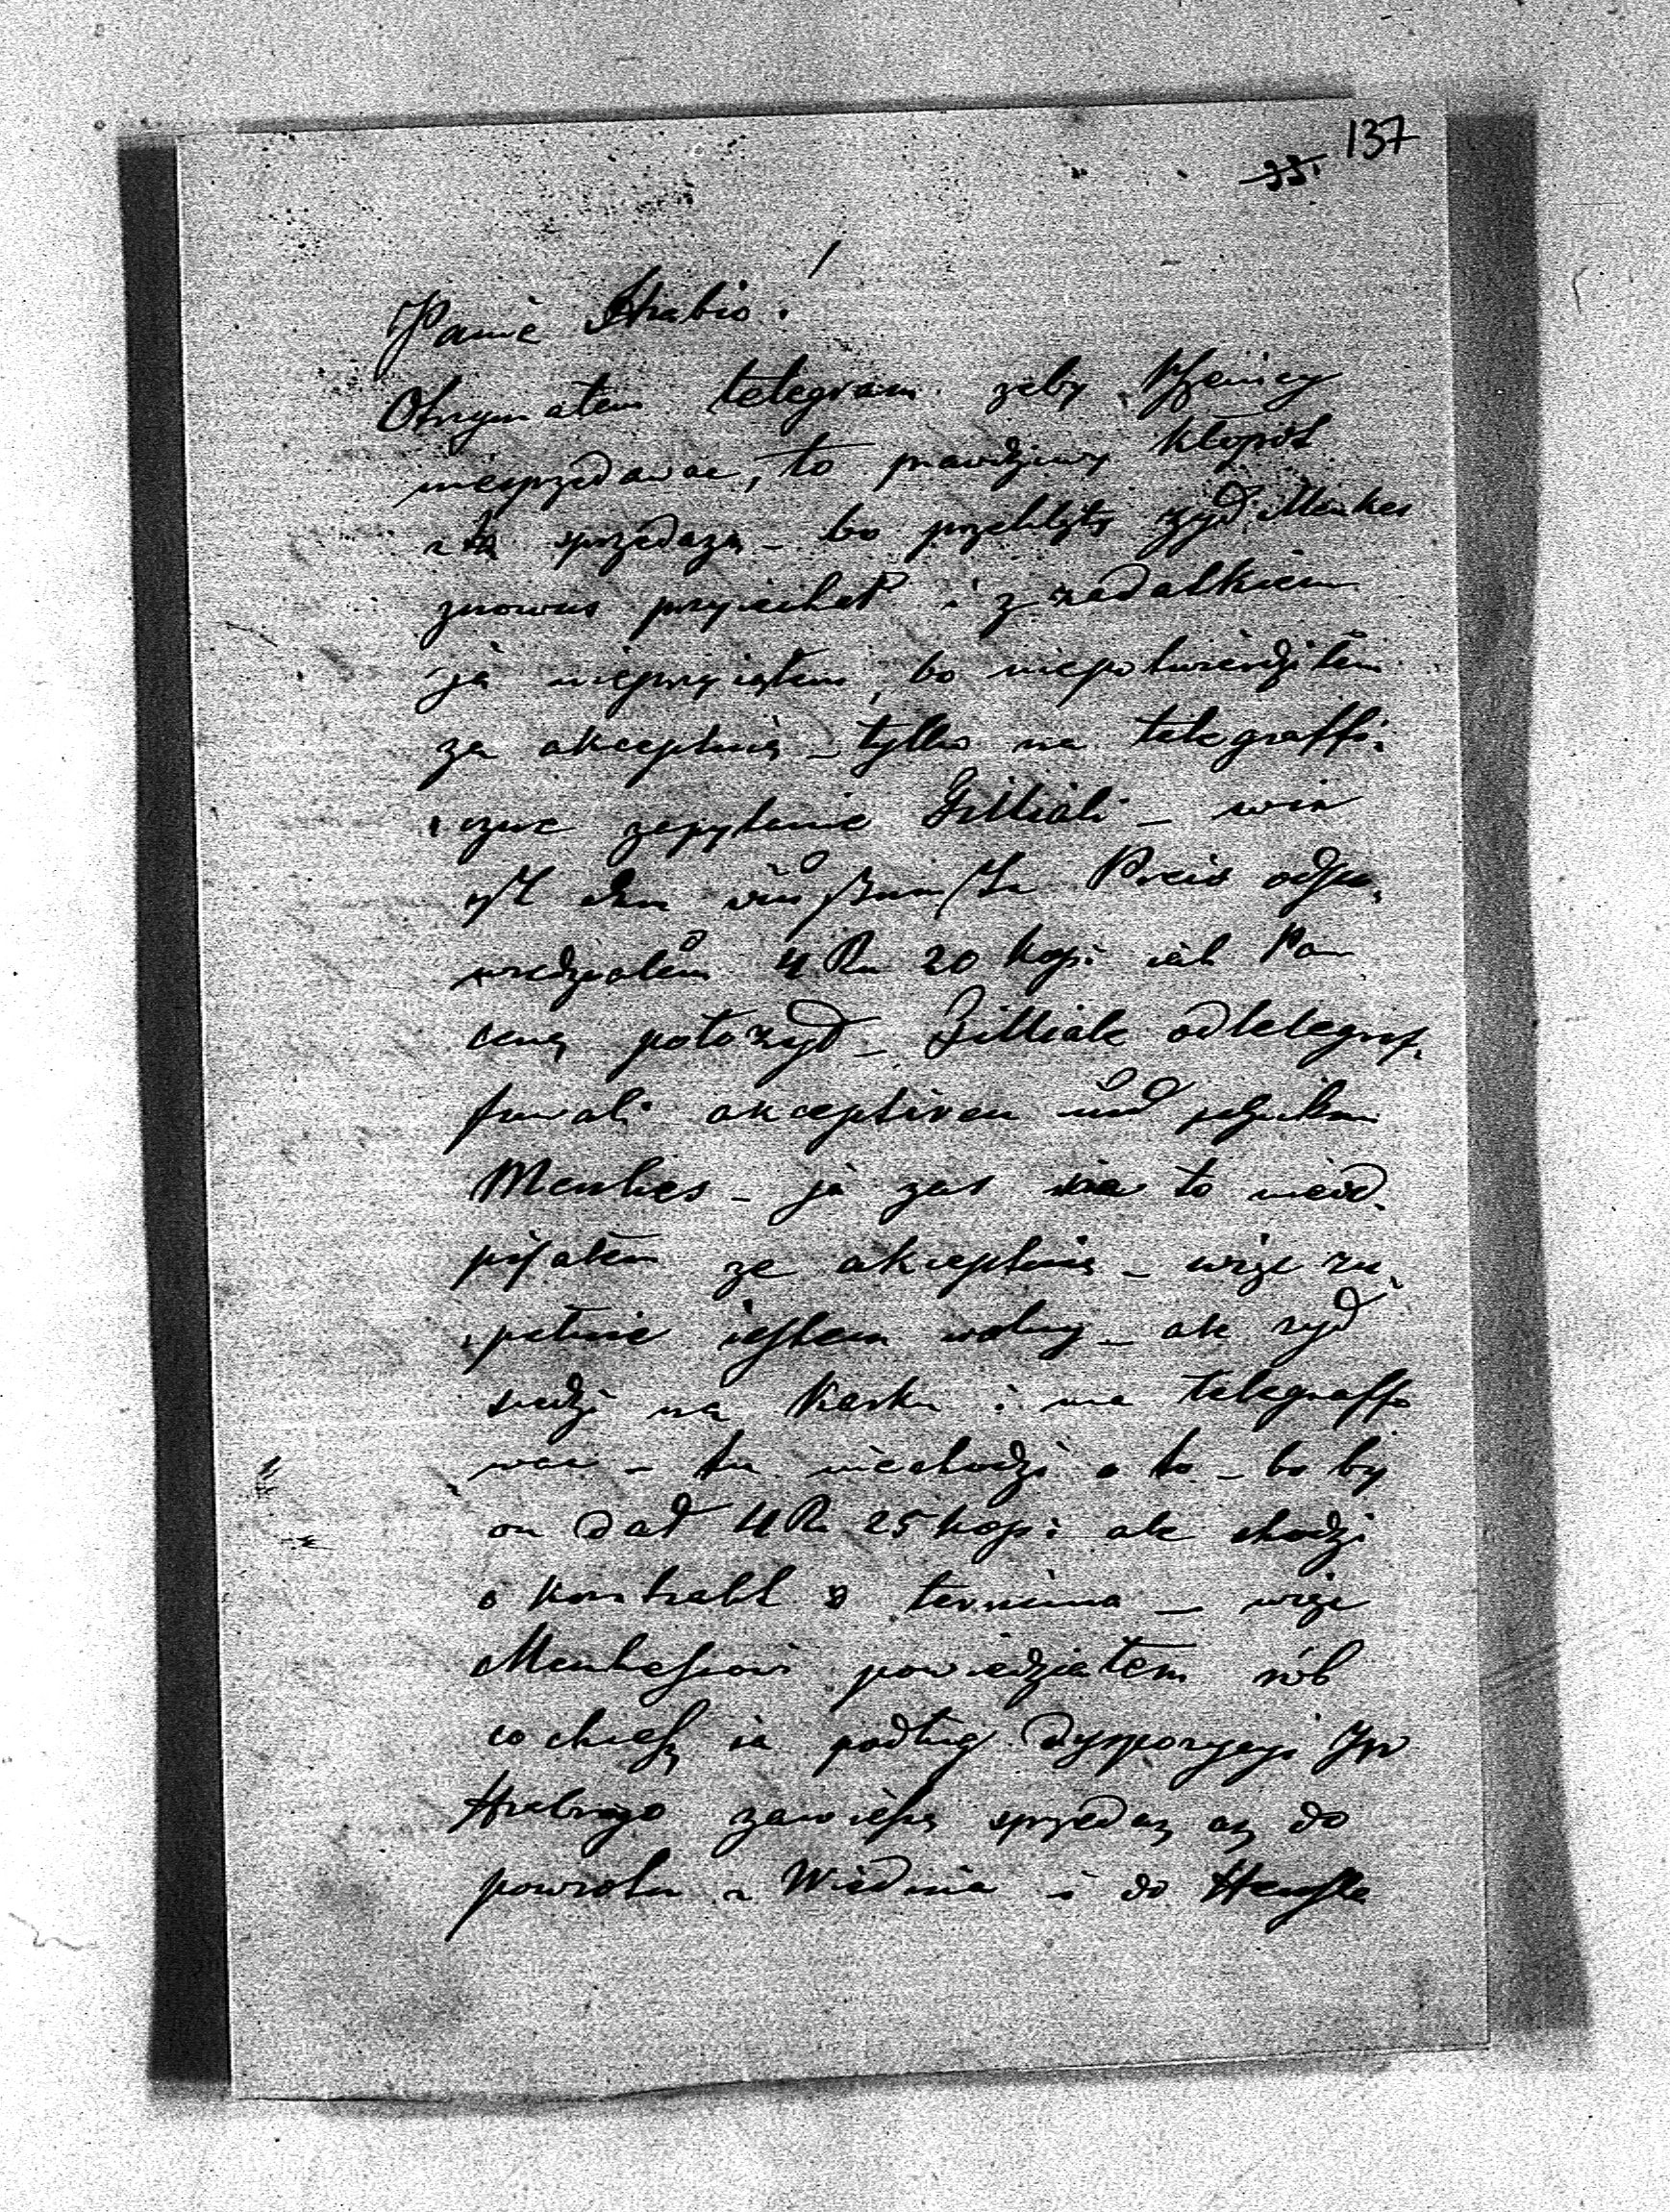 137
33.
Panie Hrabio!
Otrzymałem telegram zeby Pszenicy
niesprzedawac, to prawdziwy kłopot
z tą sprzedazą _ bo przeklęty zyd Menkes
znowus przyiechał i z zadatkiem
ja nieprzyiąłem, bo niepotwierdziłem
za akceptuię _ tylko na telegraffi-
czne zapytanie Filliali _ wie
ist der Preis odpo-
wiedziałem 4 Ru 20 kopi iak Pan
cenę położył _ Filliale odtelegraf-
fowali akceptiren und schicken
Menkes _ ja zas na to nieod-
pisałem ze akceptuię _ więc zu-
pełnie iestem wolny _ ale zyd
siedzi na karku i ma telegraffo
wac _ tu niechodzi o to _ bo by
on dał 4 Ru 25 kopi ale chodzi
o kontrakt o termina _ więc
Menkesowi powiedziałem rób
co chcesz ia podług dyspozycyi JW
Hrabiego zawieszę sprzedaz az do
powrotu z Wiednia i do